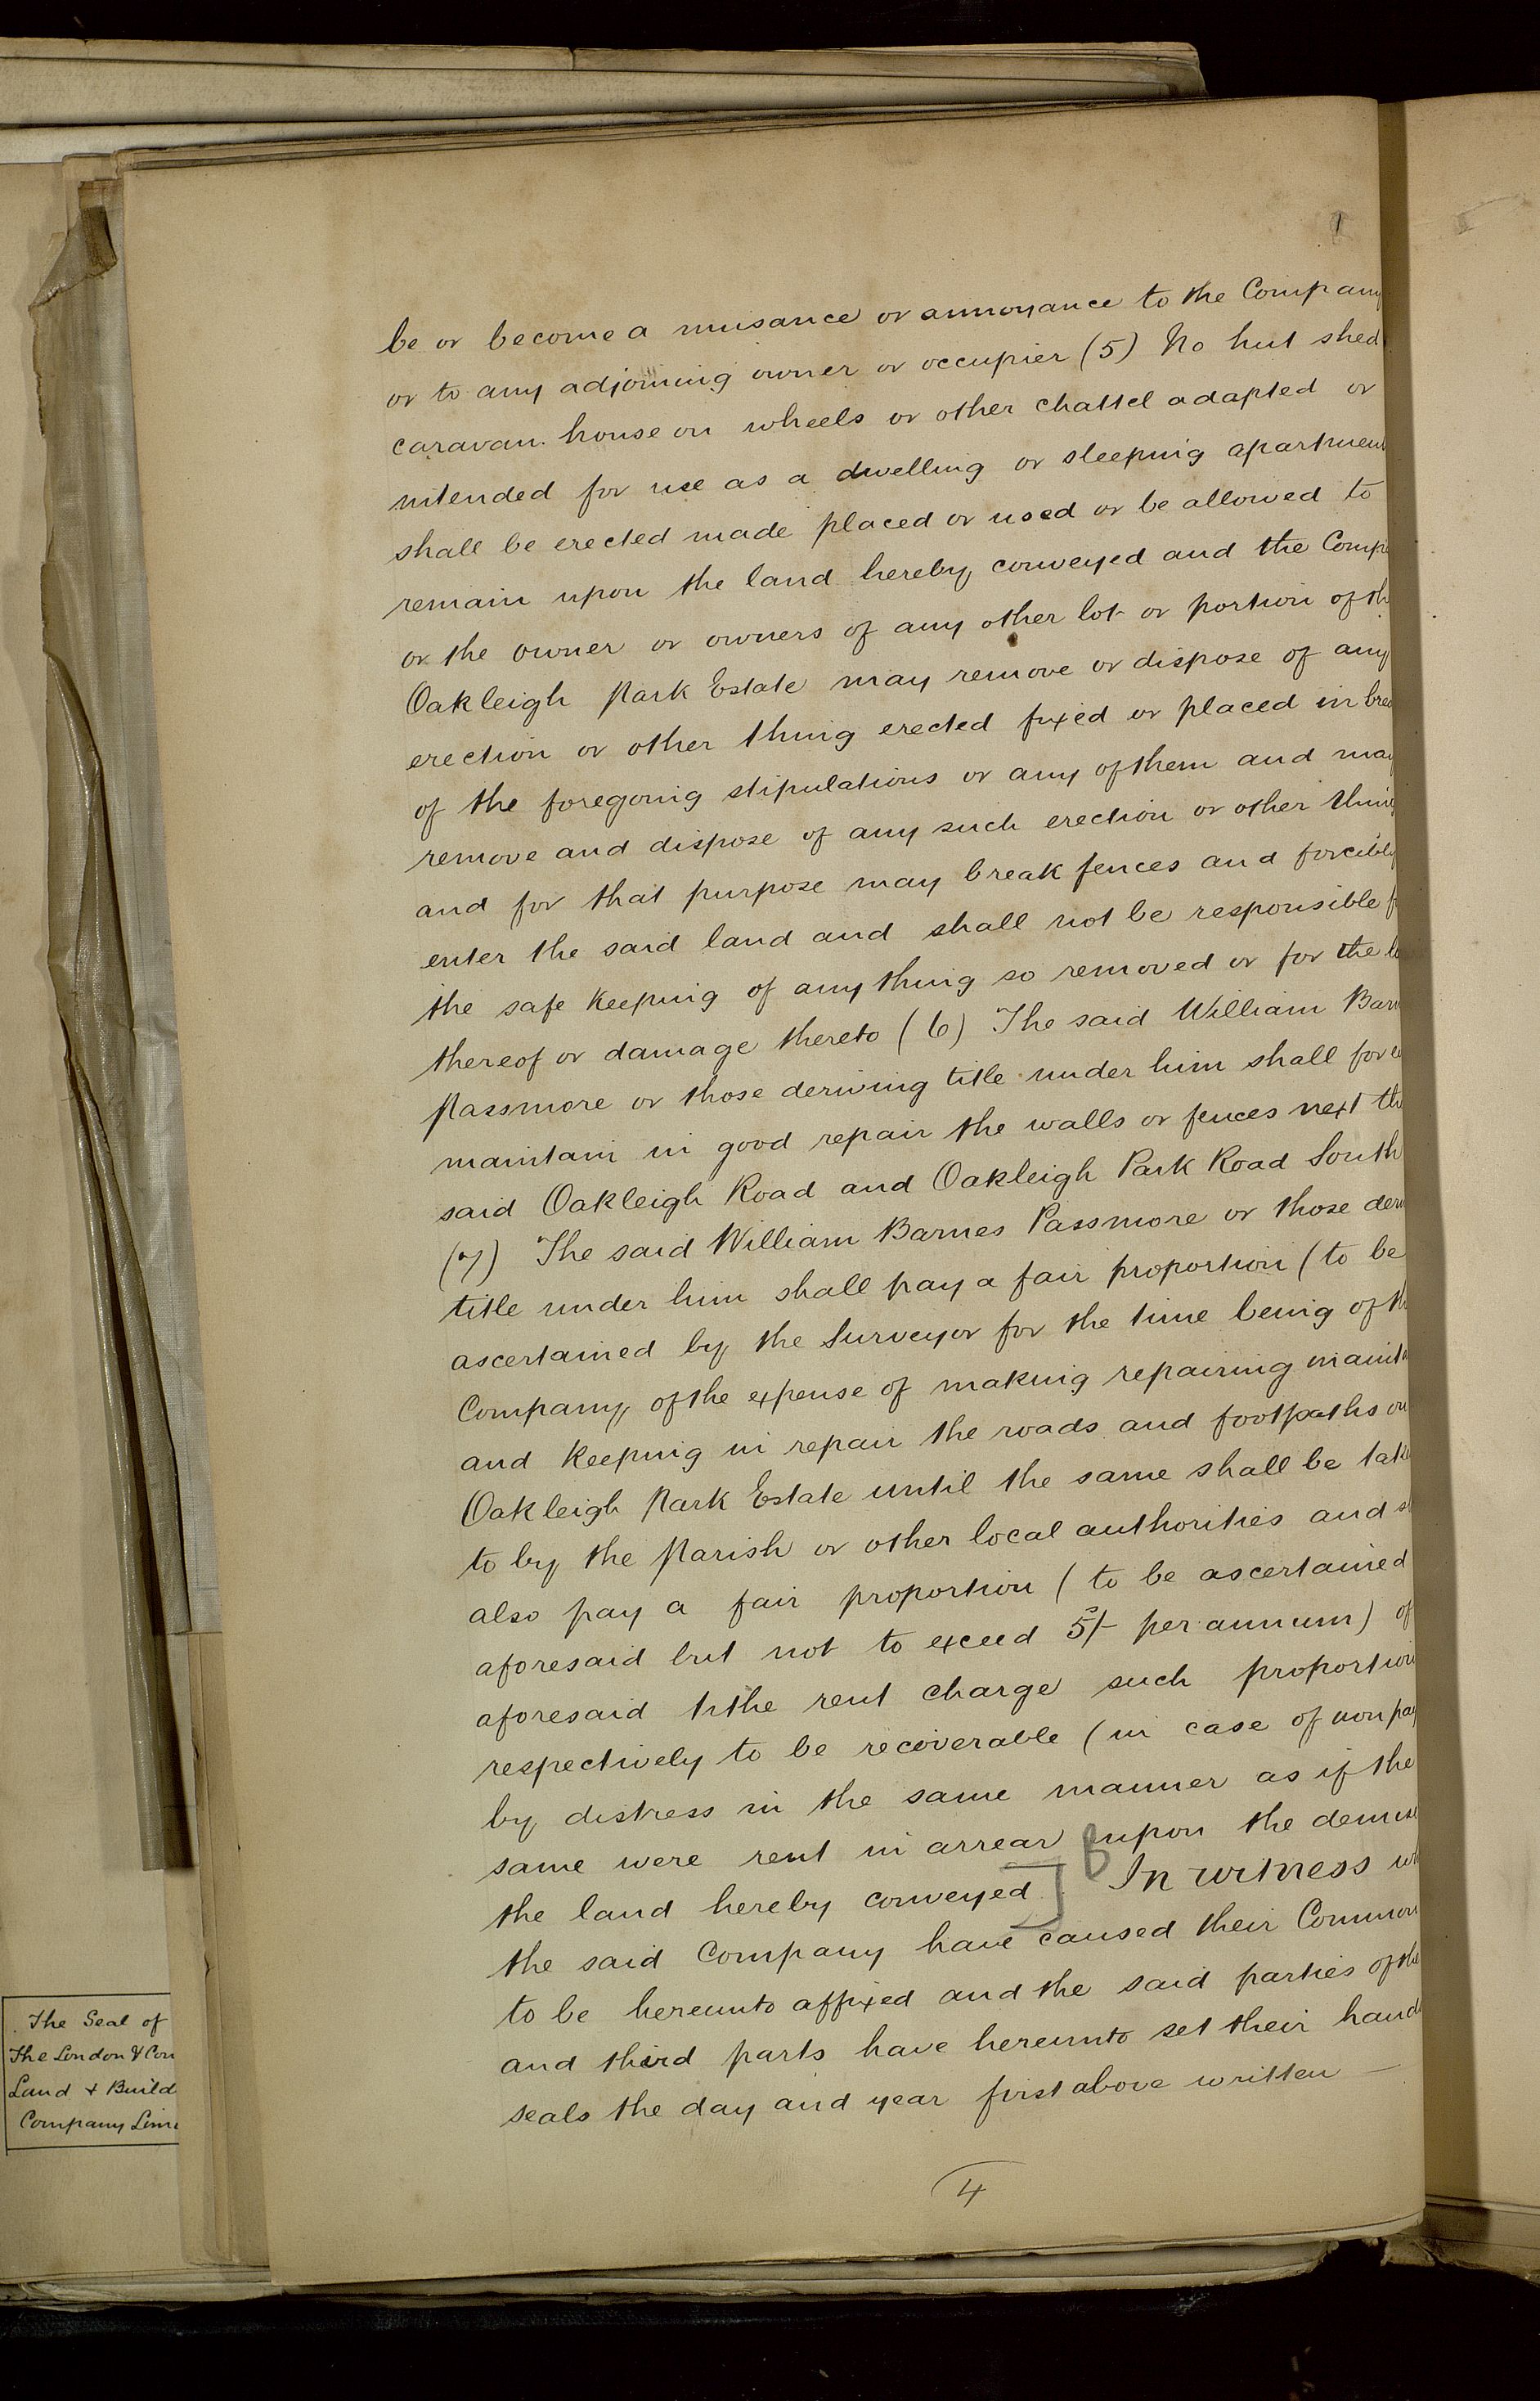 be or become a nuisance or annoyance to the Company
or to any adjoining owner or occupier (5) No hut shed
caravan house on wheels or other chattel adapted or
intended for use as a dwelling or sleeping apartmen
shall be erected made placed or used or be allowed to
remain upon the land hereby conveyed and the Comp
or the owner or owners of any other lot or portion of th
Oakleigh Park Estate may remove or dispose of any
erection or other thing erected fixed or placed in brea
of the foregoing stipulations or any of them and may
remove and dispose of any such erection or other thing
and for that purpose may break fences and forcibly
enter the said land and shall not be responsible f
the safe keeping of any thing so removed or for the lo
thereof or damage thereto (6) The said William Barn
Passmore or those deriving title under him shall for e
maintain in good repair the walls or fences next the
said Oakleigh Road and Oakleigh Park Road South
(7) The said William Barnes Passmore or those deri
title under him shall pay a fair proportion (to be
ascertained by the Surveyor for the time being of th
Company, of the expense of making repairing mainta
and keeping in repair the roads and footpaths on
Oakleigh Park Estate until the same shall be take
to by the Parish or other local authorities and s
also pay a fair proportion (to be ascertained
aforesaid but not to exceed 5/- per annum) of
aforesaid tithe rent charge such proportion
respectively to be recoverable (in case of non pay
by distress in the same manner as if the
same were rent in arrear upon the demise
the land hereby conveyed] In witness wh
the said Company have caused their Common
to be hereunto affixed and the said parties of the
and third parts have hereunto set their hand
seals the day and year first above written —
4
The Seal of
The London & Coun
Land & Build
Company Limi